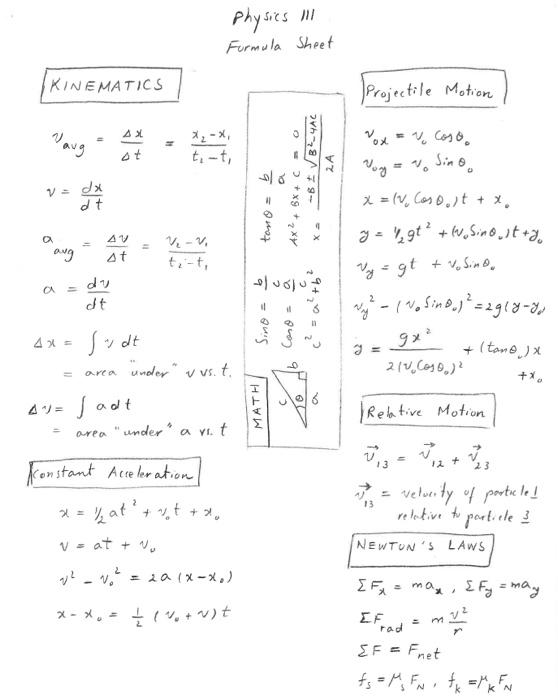 Physics III
Formula Sheet
KINEMATICS
v_avg = Δx/Δt = (x₂-x₁)/(t₂-t₁)
v = dx/dt
a_avg = Δv/Δt = (v₂-v₁)/(t₂-t₁)
a = dv/dt
Δx = ∫ v dt
= area "under" v vs. t.
Δv = ∫ a dt
= area "under" a vs. t
Constant Acceleration
x = ½at² + v₀t + x₀
v = at + v₀
v² - v₀² = 2a(x-x₀)
x-x₀ = 1/2 (v₀+v)t
MATH
c b θ a
Sinθ = b/c
Cosθ = a/c
c² = a²+b²
tanθ = b/a
AX² + BX + C = 0
x = (-B ± √(B²-4AC))/2A
Projectile Motion
v₀ₓ = v₀ Cosθ₀
v₀y = v₀ Sinθ₀
x = (v₀ Cosθ₀)t + x₀
y = ½gt² + (v₀Sinθ₀)t+y₀
v_y = gt + v₀Sinθ₀
v_y² - (v₀Sinθ₀)² = 2g(y-y₀)
y = gx²/2(v₀Cosθ₀)² + (tanθ₀)x
+x₀
Relative Motion
v⃗₁₃ = v⃗₁₂ + v⃗₂₃
v⃗₁₃ = velocity of particle 1
relative to particle 3
NEWTON'S LAWS
ΣFₓ = maₓ, ΣF_y = ma_y
ΣF_rad = m v²/r
ΣF = F_net
f_s = μ_s F_N, f_k = μ_k F_N